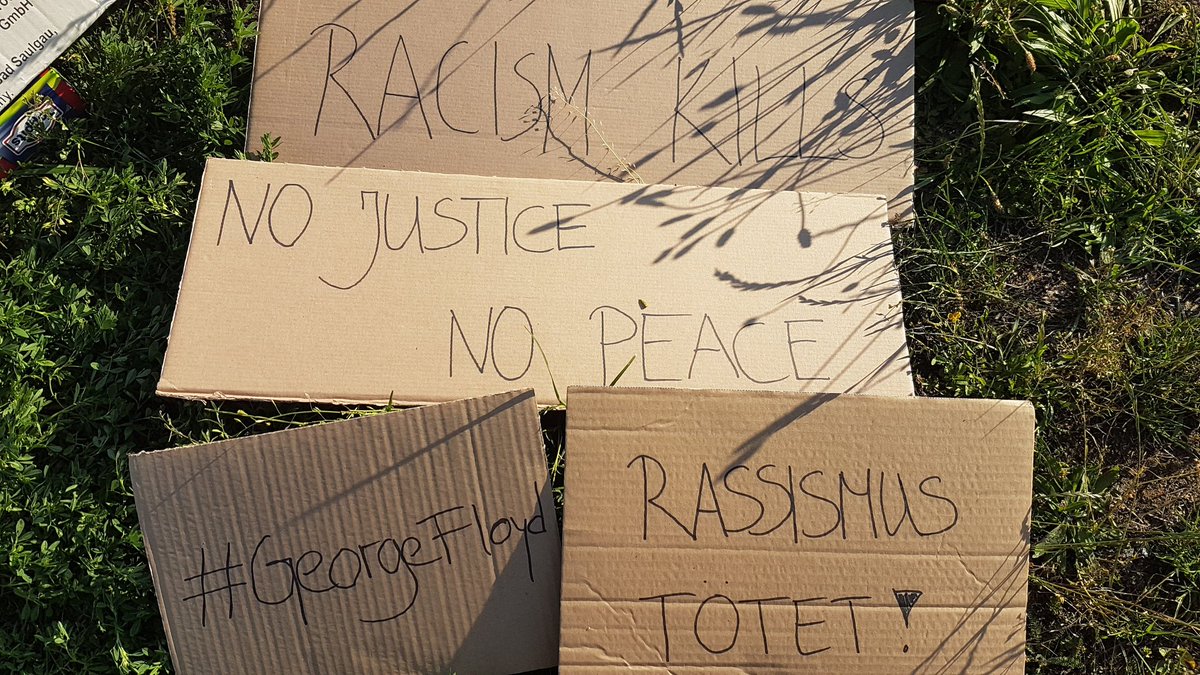 GmbH
Bad Saulgau,
RACISM KILLS
NO JUSTICE
NO PEACE
#GeorgeFloyd
RASSISMUS
TÖTET!